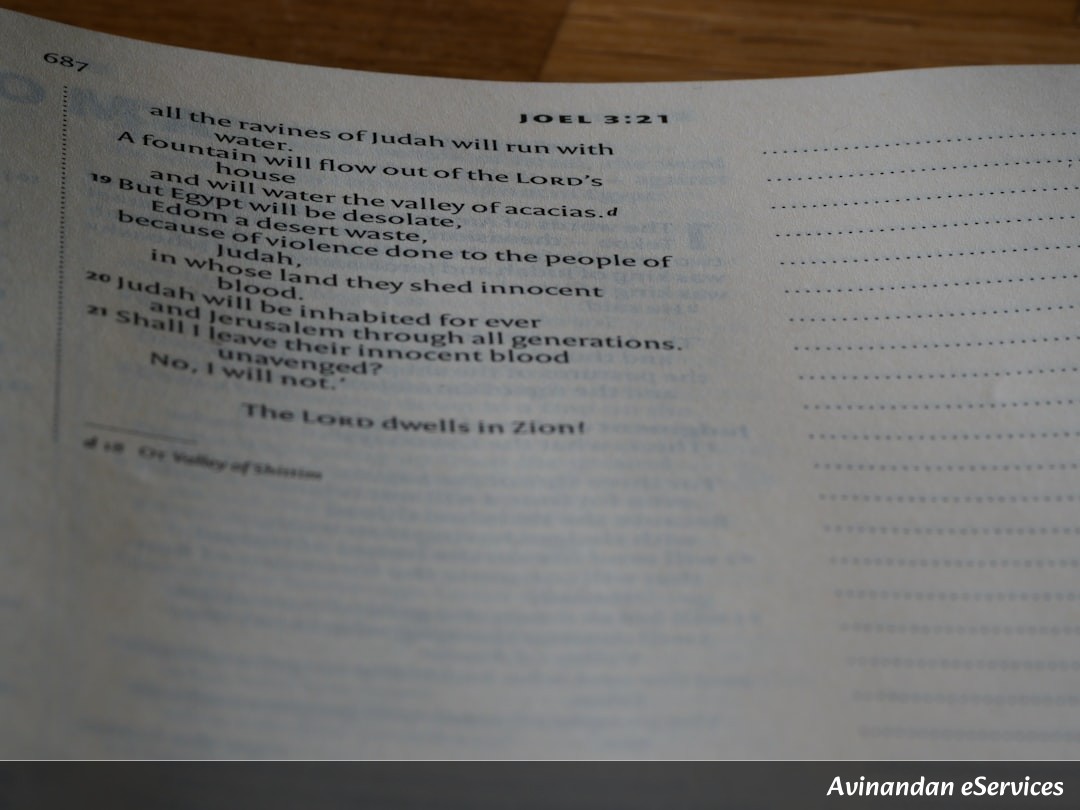 687
JOEL 3:21
all the ravines of Judah will run with
water.
A fountain will flow out of the LORD's
house
and will water the valley of acacias.d
19 But Egypt will be desolate,
Edom a desert waste,
because of violence done to the people of
Judah,
in whose land they shed innocent
blood.
20 Judah will be inhabited for ever
and Jerusalem through all generations.
21 Shall I leave their innocent blood
unavenged?
No, I will not.’
The LORD dwells in Zion!
d 18 Or Valley of Shittim
Avinandan eServices